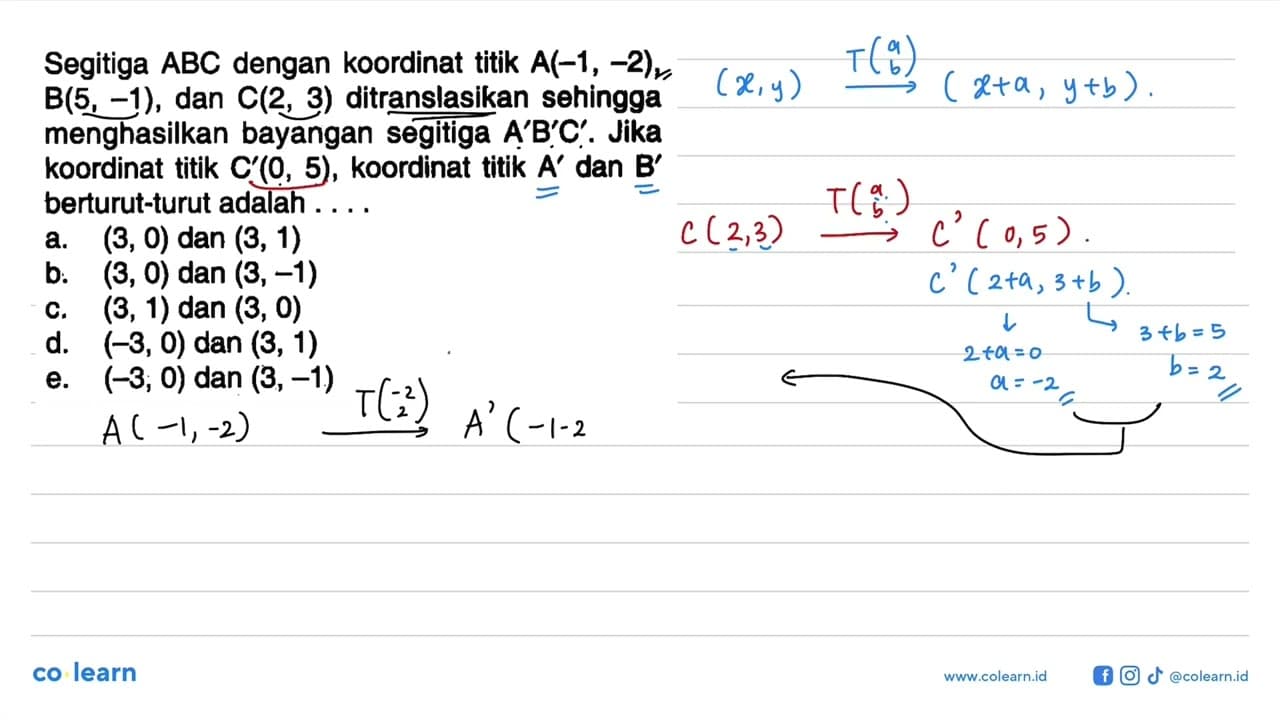 Segitiga ABC dengan koordinat titik A(–1, –2),
B(5, –1), dan C(2, 3) ditranslasikan sehingga
menghasilkan bayangan segitiga A′B′C′. Jika
koordinat titik C′(0, 5), koordinat titik A′ dan B′
berturut-turut adalah . . . .
a. (3, 0) dan (3, 1)
b. (3, 0) dan (3, –1)
c. (3, 1) dan (3, 0)
d. (–3, 0) dan (3, 1)
e. (–3, 0) dan (3, –1)
A(-1, -2) T(-2 2) → A'(-1-2
(x, y) T(a b) → (x+a, y+b).
C(2,3) T(a b) → C'(0,5).
C'(2+a, 3+b).
↓ ↳ 3+b=5
2+a=0
b=2
a=-2
co learn
www.colearn.id @colearn.id